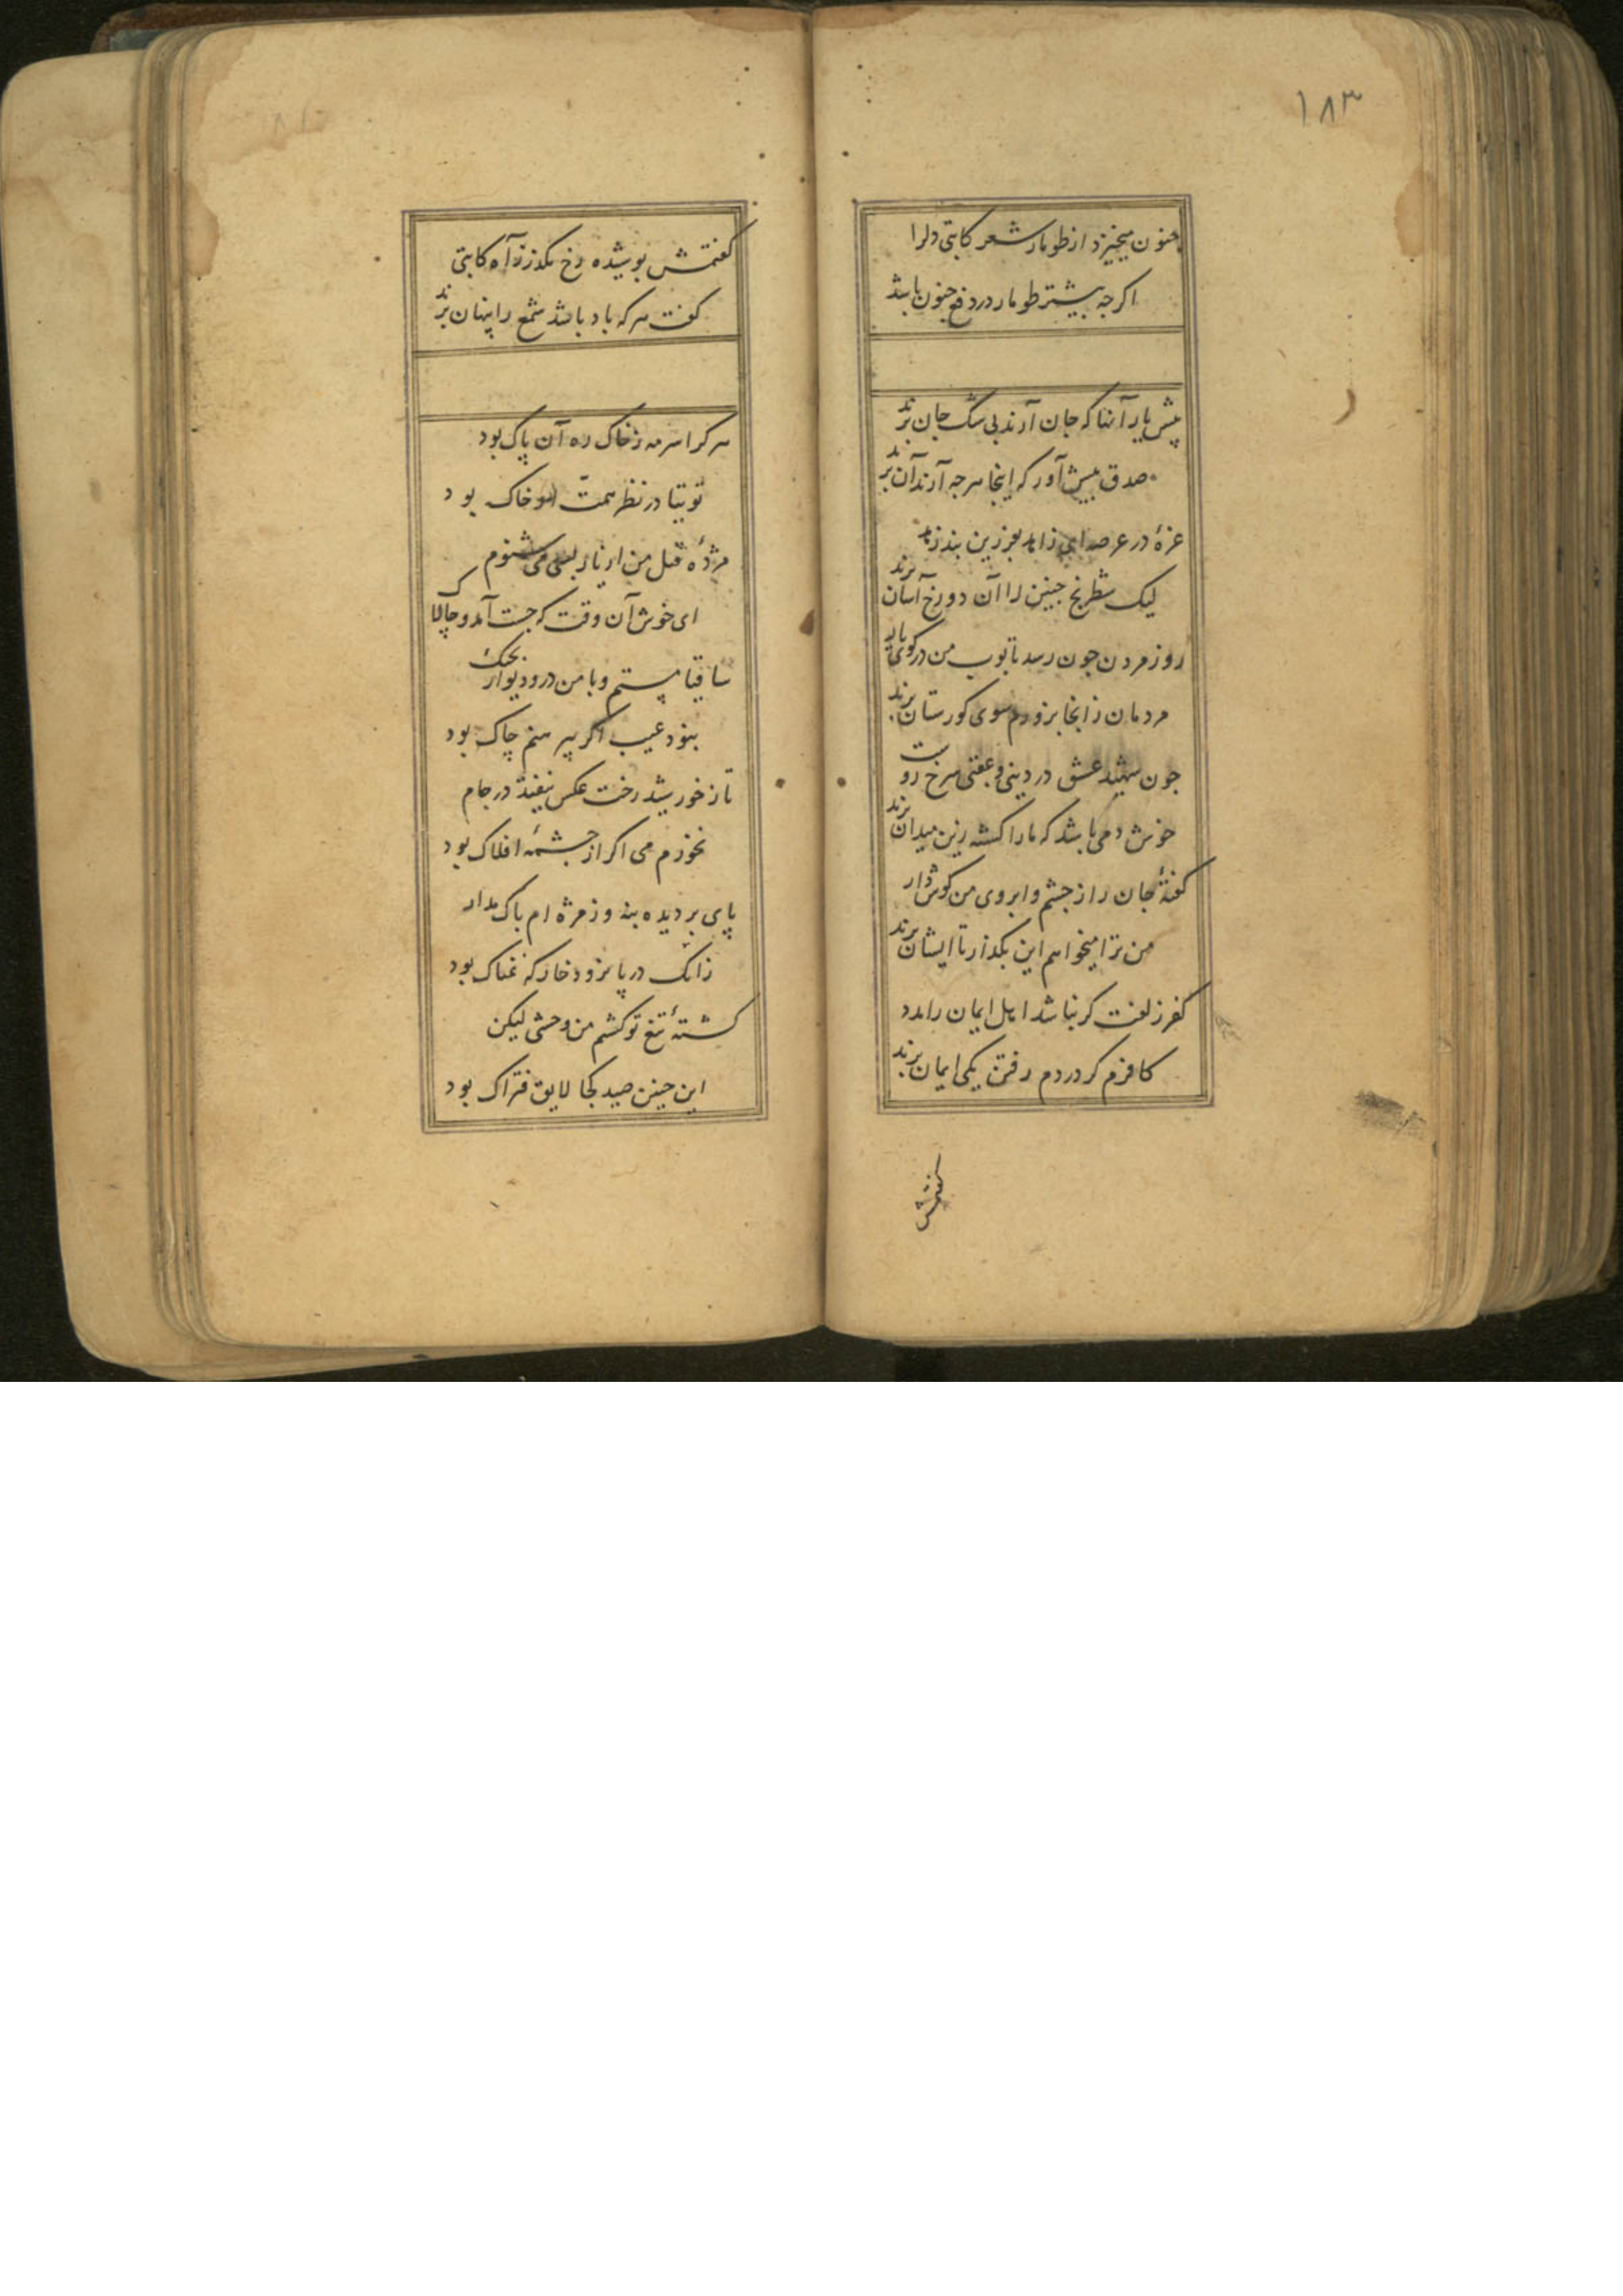 ۱۸۳
جنون میخیزد از طومار شعر کاتبی دلرا
اکرجه بیشتر طومار در دفع جنون باشد
پیش یار آنها که جان آرند بی شک جان برند
صدق پیش آور که اینجا هرجه آرند آن برند
غرهٔ در عرصه ای زاهد بفرزین بند زهد
لیک شطرنج جنین را آن دو رخ آسان برند
روز مردن جون رسد تابوت من در کوی یار
مردمان زانجا بزورم سوی کورستان برند
جون شهید عشق در دینی و عقبی سرخ روست
خوش دمی باشد که ما را کشته زین میدان برند
کفتهٔ جان را ز جشم و ابروی من کوش دار
من ترا میخواهم این بکذار تا ایشان برند
کفر زلفت کر نباشد اهل ایمان را مدد
کافرم کر در دم رفتن یکی ایمان برند
کفتمش
کفتمش پوشیده رخ مکذر ز آه کاتبی
کفت هر که باد باشد شمع را پنهان برند
هر کرا سرمه ز خاک ره آن پاک بود
توتیا در نظر همت او خاک بود
مژدهٔ قتل من از یار بسی می شنوم
ای خوش آن وقت که جست آمد و چالاک
ساقیا مستم و با من در و دیوار بجنک
نبود عیب اکر پیرهنم چاک بود
تا ز خورشید رخت عکس نیفتد در جام
نخورم می اکر از جشمهٔ افلاک بود
پای بر دیده بنه وز مژه ام باک مدار
زانک در پا نرود خار که نمناک بود
کشتهٔ تیغ تو کشتم من وحشی لیکن
این جنین صید کجا لایق فتراک بود